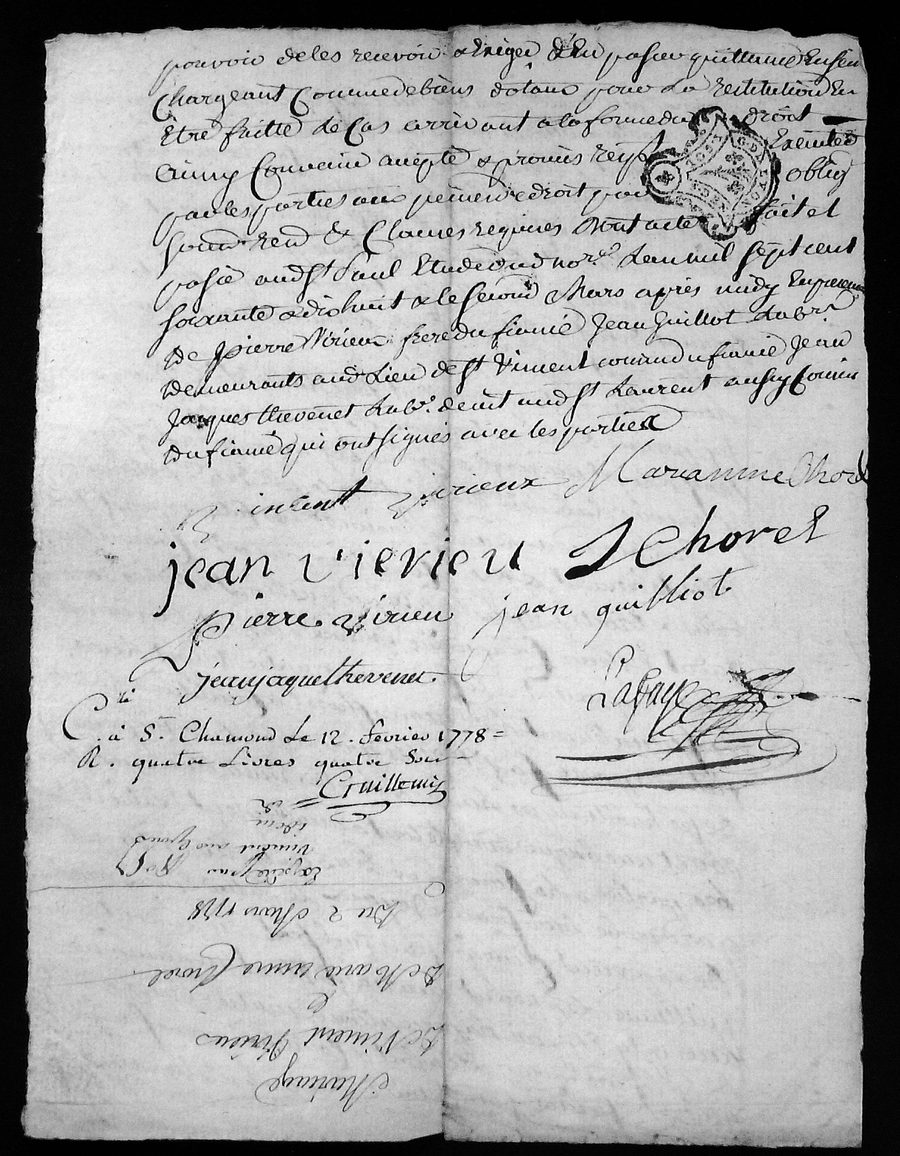 pouvoir de les recevoir & Exiger d'En passer quittance En sen
Chargeant Comme de biens dotaux pour La Restitution En
Être faitte le Cas arrivant a la forme du droit
ainsy Convenu accepté & promis oblig
par les parties aux peines de droit
soum. rend. & Clauses requises dont acte fait et
passé audt St Paul Etude dud nore. L'an mil sept cent
soixante & dix huit & le second Mars après midy En presence
De Pierre Virieux frere du fiancé Jean Guillot Labr.
Demeurants aud Lieu de St Vincent cousin du fiancé Jean
Jacques thevenet Labr. de audt St Laurent aussy Cousin
Du fiancé qui ont signés avec les parties
Vincent Virieux Marianne Chorel
jean Vierieu J Chorel
pierre Virieu jean guilliot
jean jaque thevenet
Lafaye
C. à St. Chamond Le 12. fevrier 1778 =
R. quatre Livres quatre Sous
Mariage
De Vincent Virieux
&
De Marie anne Chorel
Du 2 Mars 1778
Expédié pour
Vincent